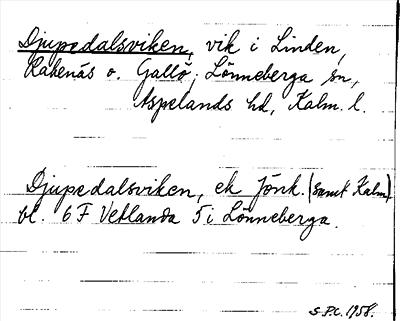 Djupedalsviken, vik i Linden,
Rakenäs o. Gallö; Lönneberga sn,
Aspelands hd, Kalm. l.
Djupedalsviken, ek Jönk. (samt Kalm)
bl. 6 F Vetlanda 5 i Lönneberga.
S.P.C. 1958.